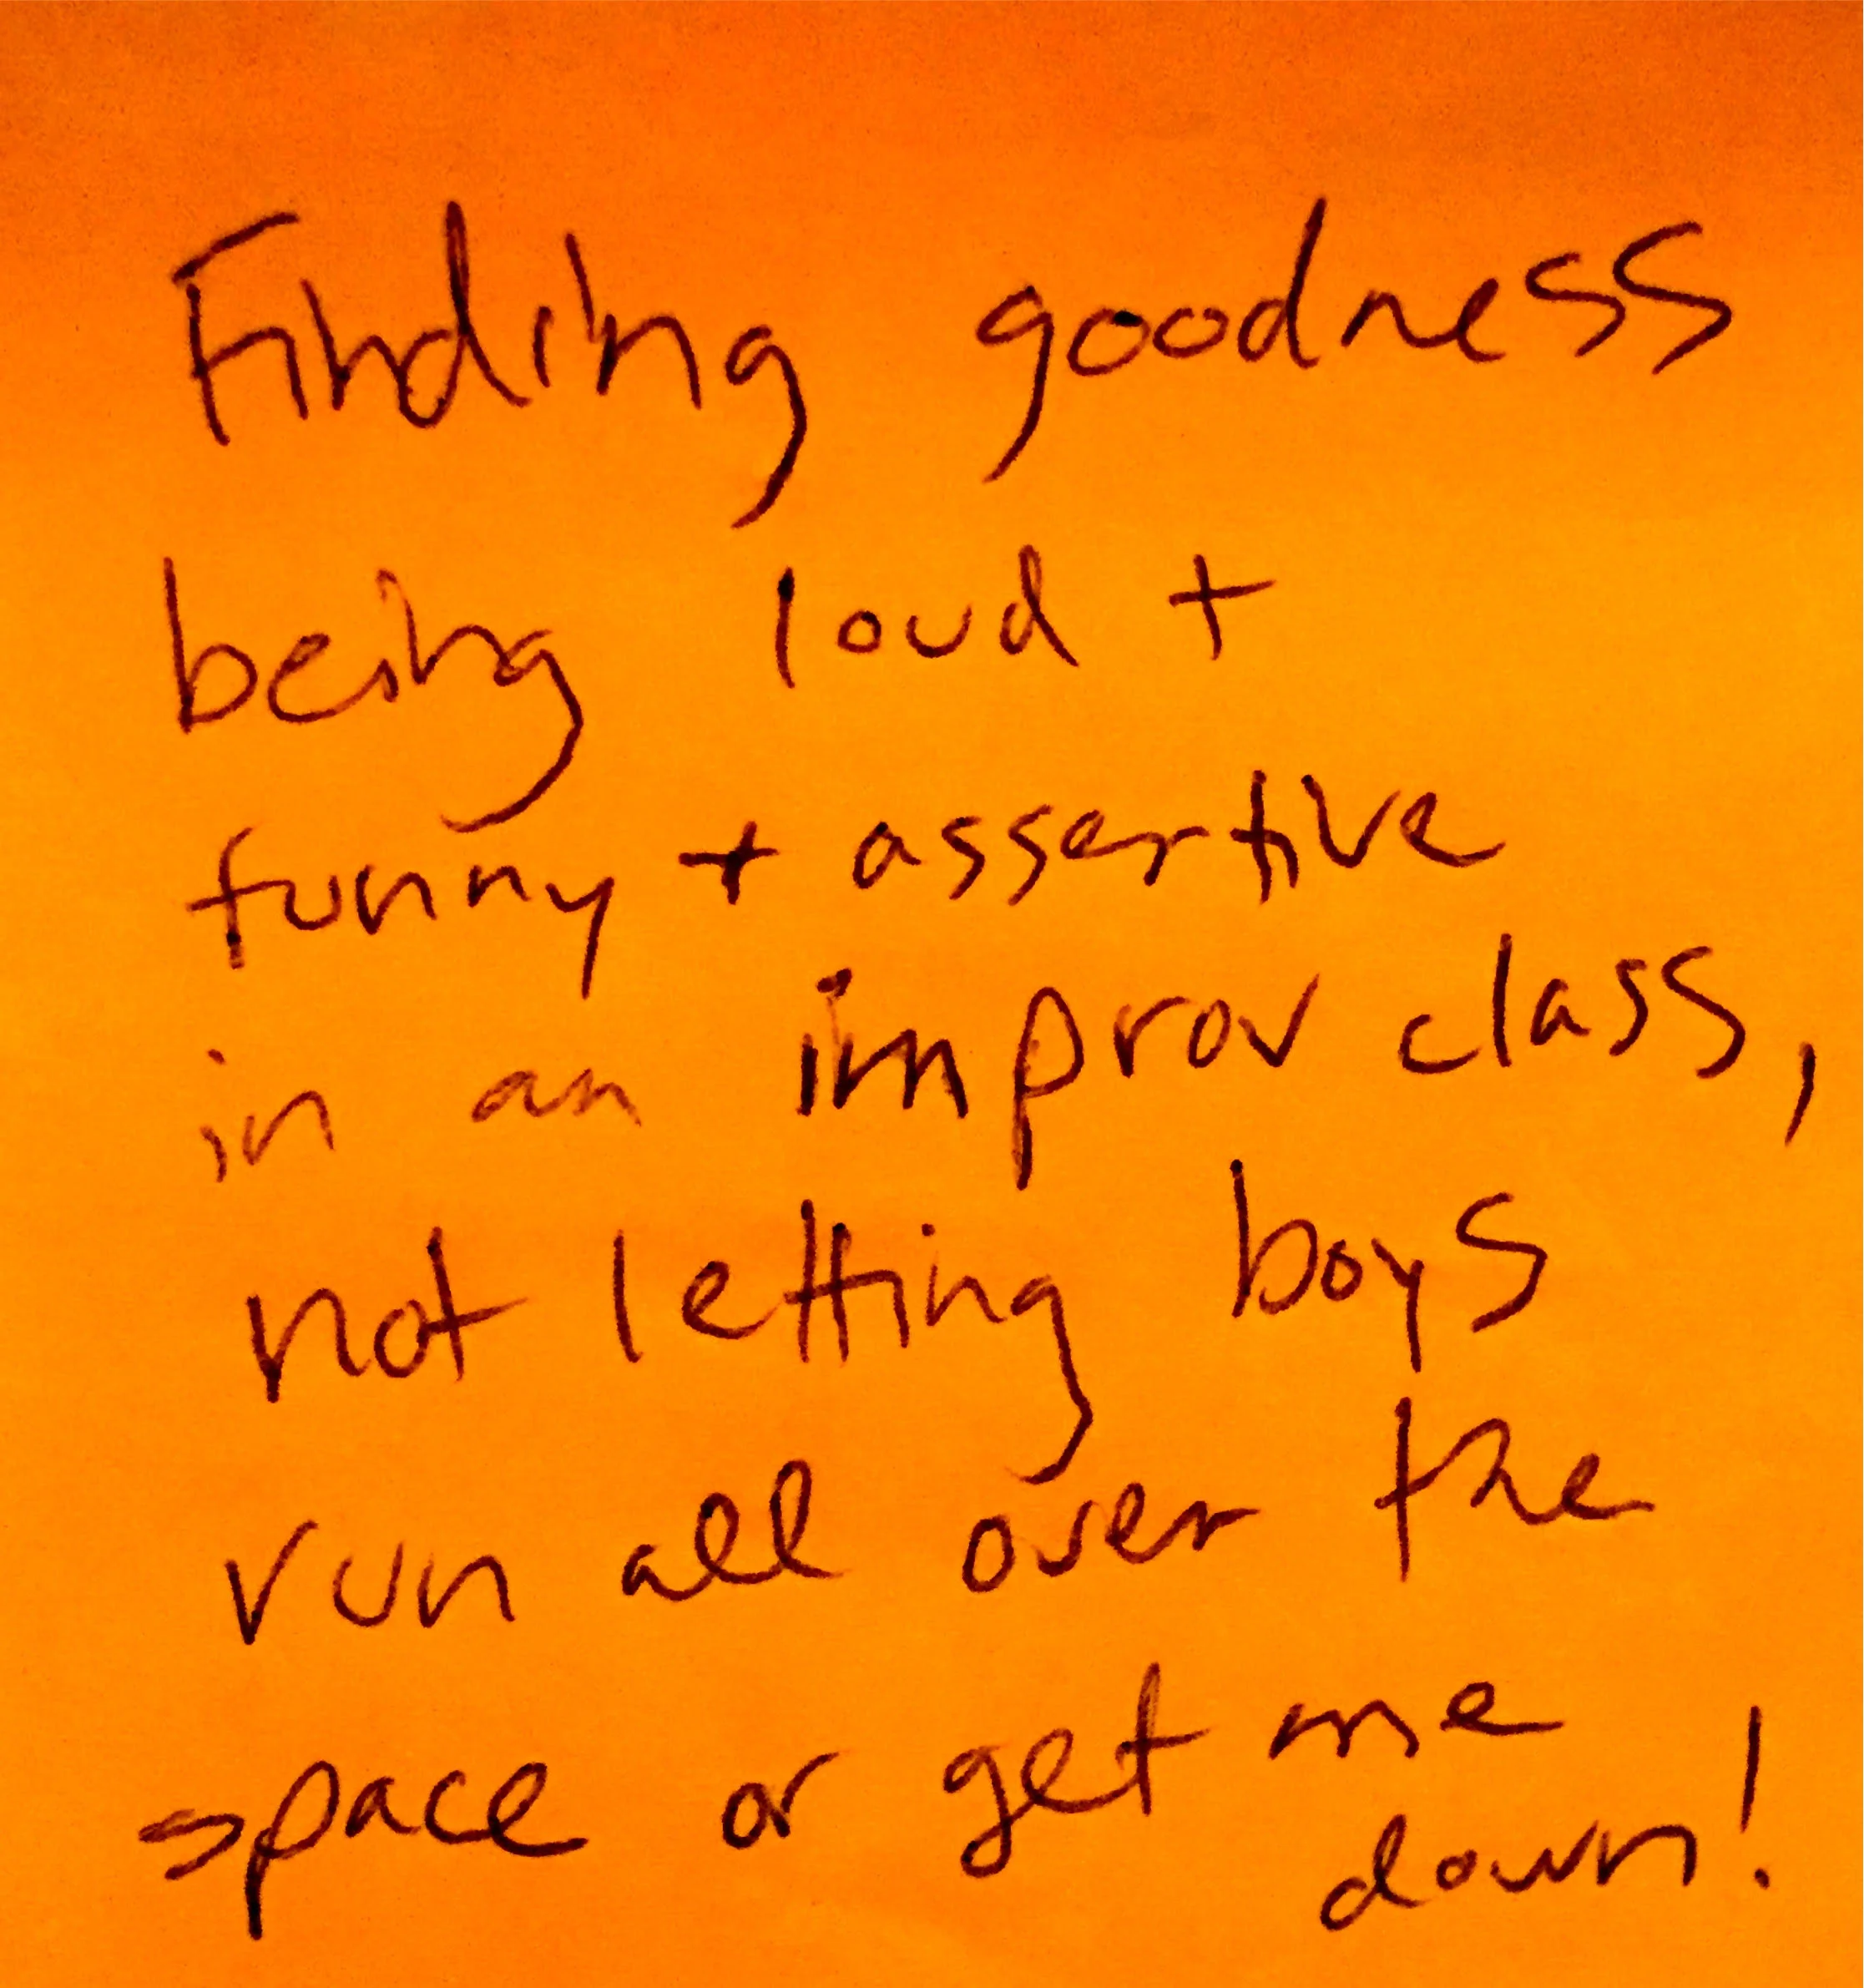 Finding goodness
being loud +
funny + assertive
in an improv class,
not letting boys
run all over the
space or get me
down!